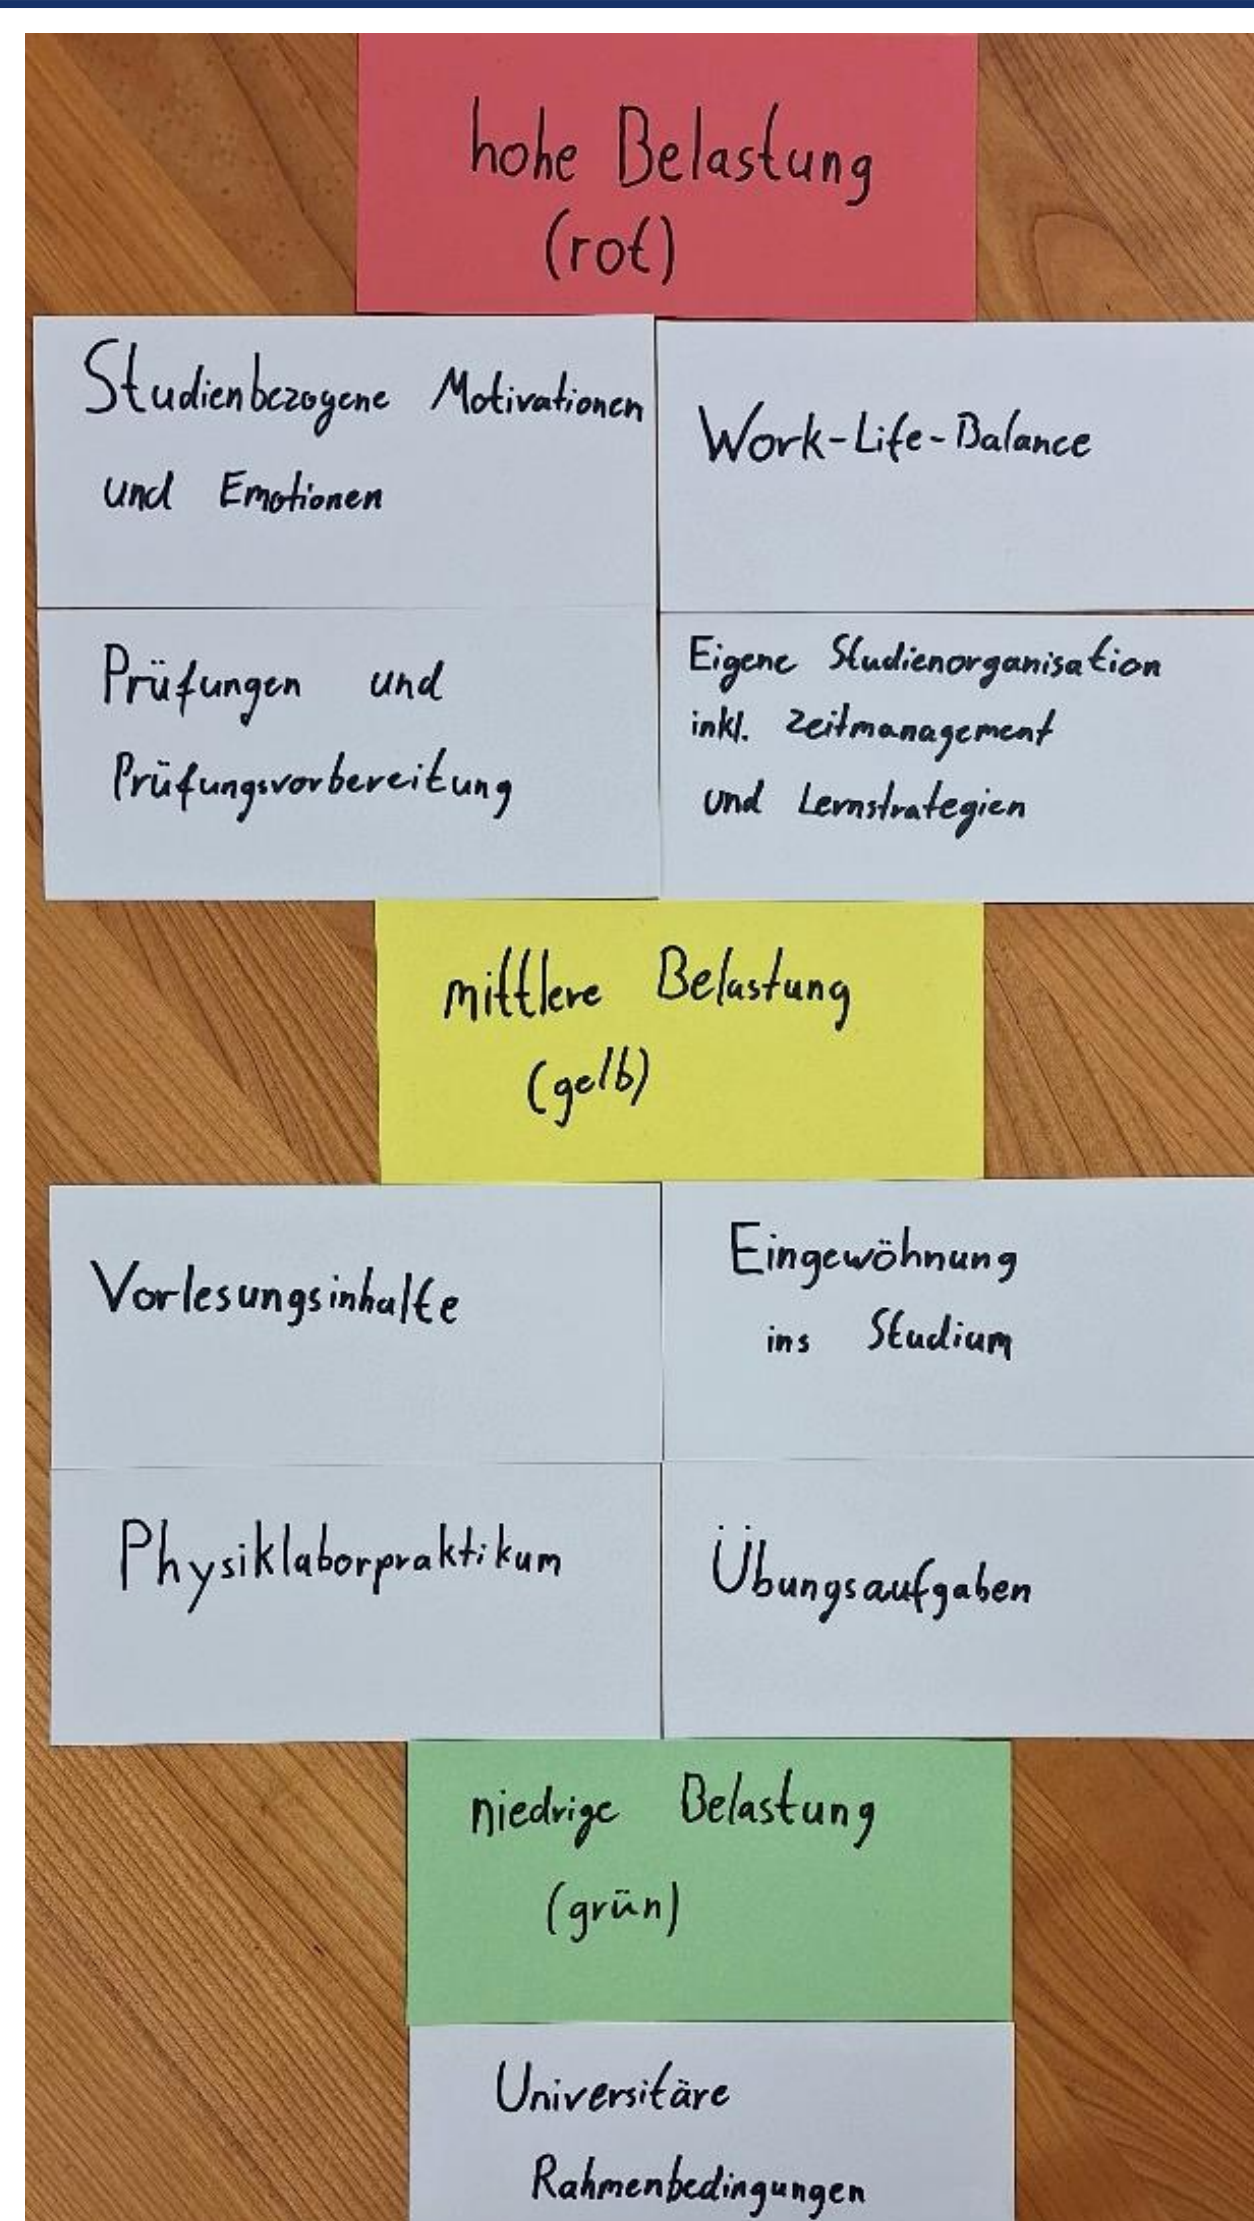 hohe Belastung
(rot)
Studienbezogene Motivationen
und Emotionen
Work-Life-Balance
Prüfungen und
Prüfungsvorbereitung
Eigene Studienorganisation
inkl. Zeitmanagement
und Lernstrategien
mittlere Belastung
(gelb)
Vorlesungsinhalte
Eingewöhnung
ins Studium
Physiklaborpraktikum
Übungsaufgaben
niedrige Belastung
(grün)
Universitäre
Rahmenbedingungen